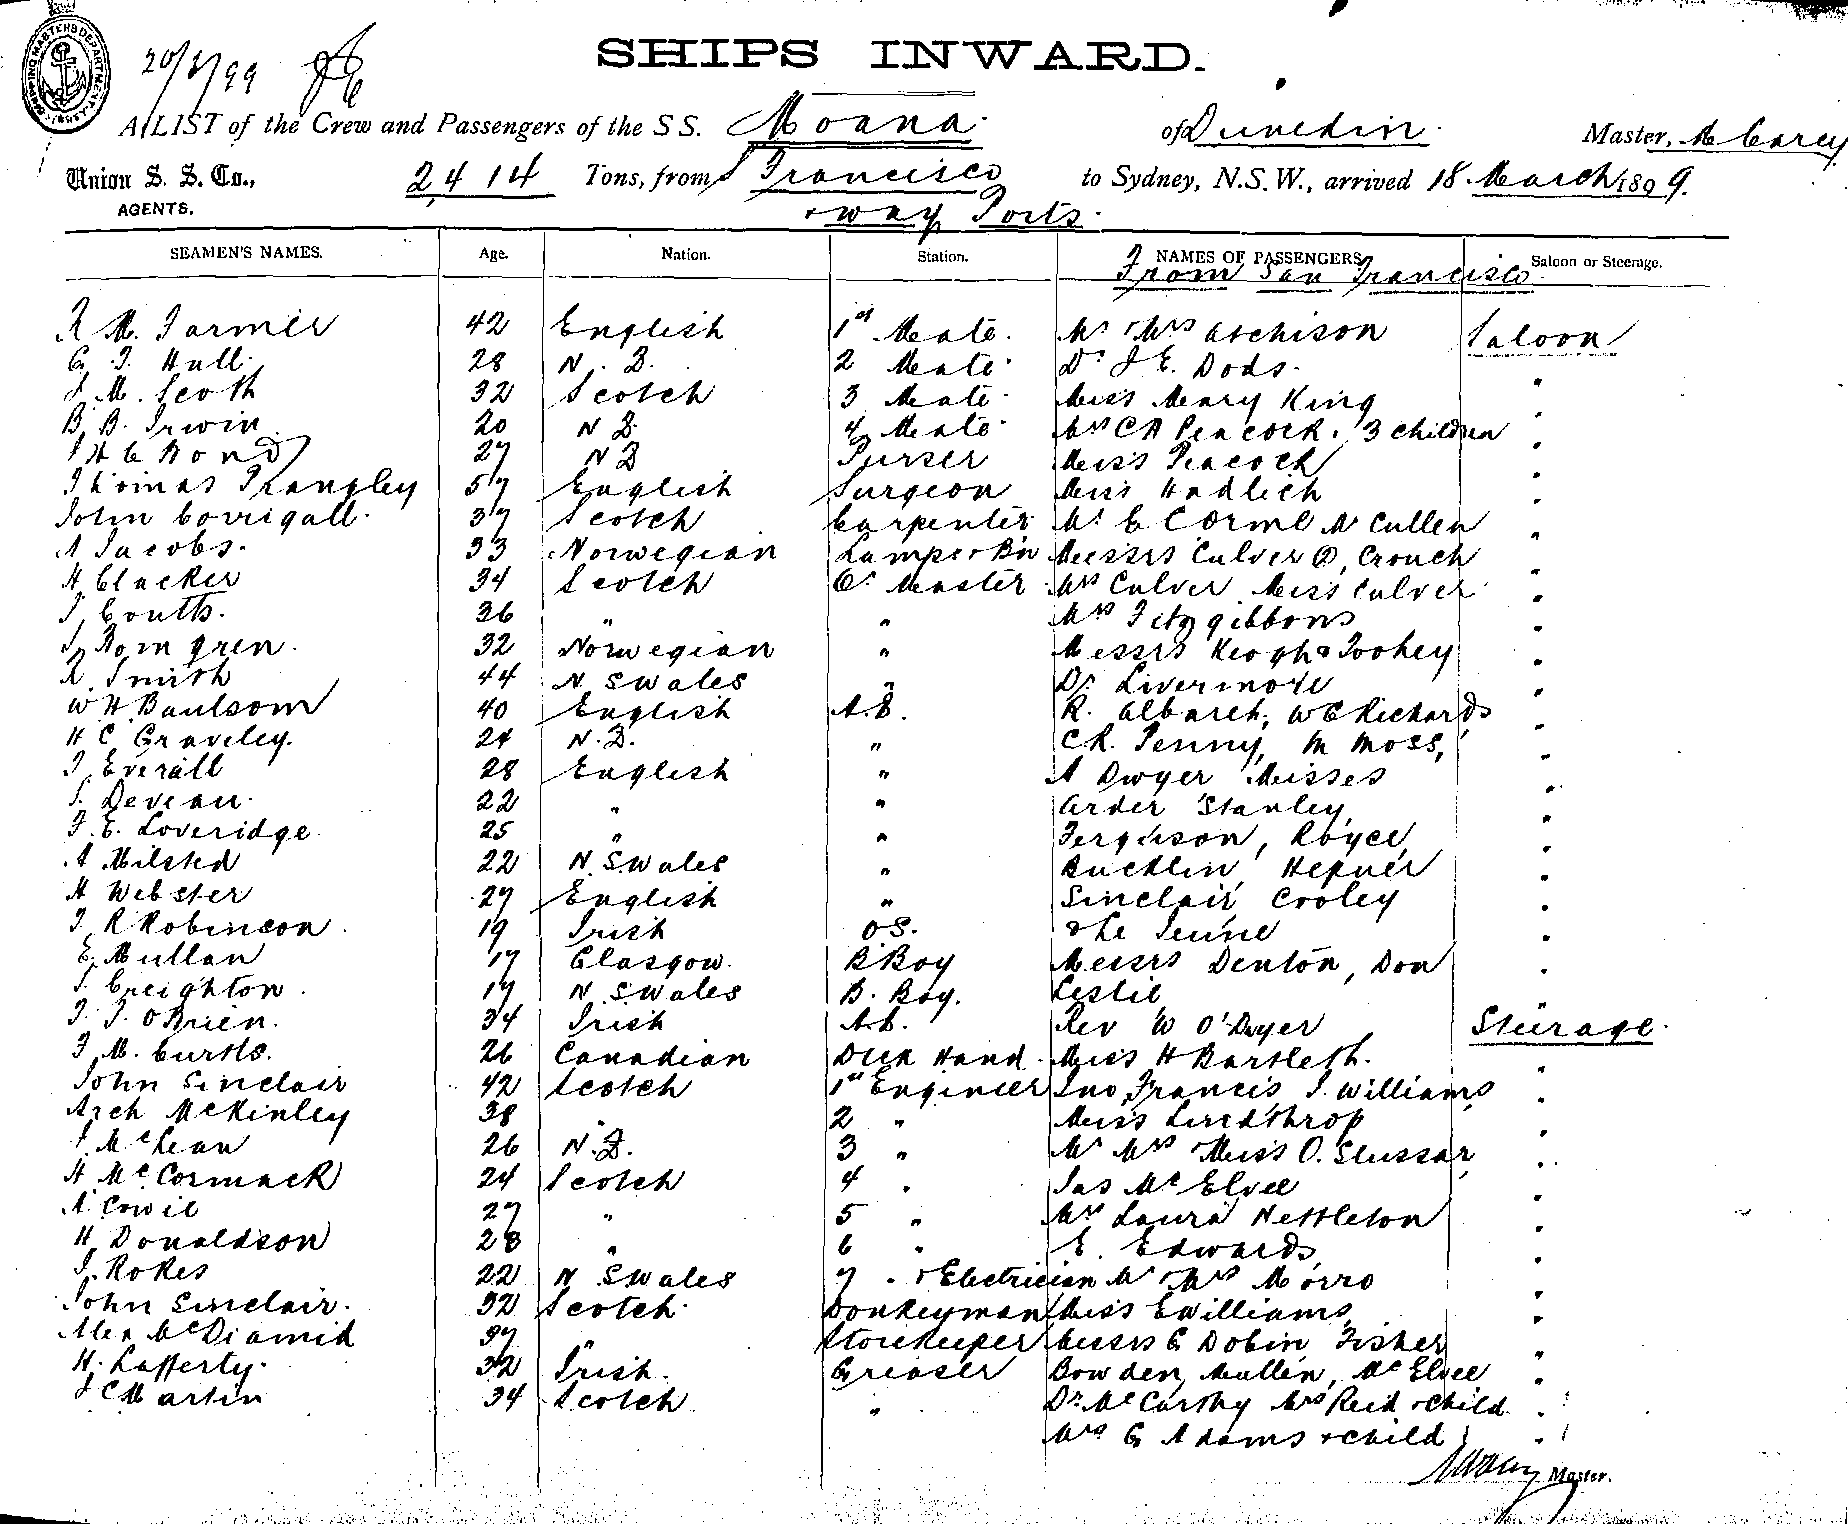 20/3/99
SHIPS INWARD.
A LIST of the Crew and Passengers of the S S. Moana of Dunedin Master, M Carey
Union S. S. Co., 2414 Tons, from S Francisco to Sydney, N.S.W., arrived 18 March 1899.
AGENTS. & way Ports.
SEAMEN'S NAMES. Age. Nation. Station. NAMES OF PASSENGERS Saloon or Steerage.
From San Francisco
R M. Farmer 42 English 1st Mate. Mr & Mrs Atchison Saloon
G. F. Hull 28 N. Z. 2 Mate. Dr J E. Dods. "
J. M. Scott 32 Scotch 3 Mate. Miss Mary King "
B. B. Irwin 20 N Z 4 Mate. Mrs C A Peacock. 3 children "
27 N Z Purser Miss Peacock "
Thomas Langley 57 English Surgeon Miss Hadlich "
John Corrigall. 37 Scotch Carpenter Mr C Corme McCullen "
A Jacobs. 33 Norwegian Messrs Culver D, Crouch "
H. Clacker 34 Scotch Qr Master Mrs Culver Miss Culver "
J. Coutts. 36 " " Mrs Fitzgibbons "
32 Norwegian " Messrs Keogh & Toohey "
R. Smith 44 N. S Wales " Dr Livermore "
W H Baulsom 40 English A.B. R. Albarch, W C Richards "
H C Graveley. 24 N.Z. " C R. Penny, M Moss, "
J. Everall 28 English " A Dwyer Misses "
S. Deveau. 22 " " Arder Stanley, "
F. E. Loveridge. 25 " " Ferguson, Royce, "
A Milsted 22 N. S. Wales " Bucklin Hepner "
H Webster 27 English " Sinclair Cooley "
J. R Robinson. 19 Irish O S. & Le Jeune "
E. Mullan 17 Glasgow. B Boy Messrs Denton, Don "
S. Creighton. 17 N. S. Wales B. Boy. Leslie "
J. J. O'Brien. 34 Irish A.B. Rev W O'Dwyer Steerage.
J. M. Curtis. 26 Canadian Deck Hand. Miss H Bartlett. "
John Sinclair 42 Scotch 1st Engineer Jno Francis J. Williams "
Arch McKinley 38 " 2 " Miss Lindthrop "
J. McLean 26 N.Z. 3 " Mr Mrs Miss O. Slussar, "
H. McCormack 24 Scotch 4 " Jas McElvee "
A. Cowie 27 " 5 " Mrs Laura Nettleton "
H. Donaldson 28 " 6 " E. Edwards, "
J. Rokes 22 N. S Wales 7 " & Electrician Mr & Mrs Morro "
John Sinclair. 32 Scotch. Donkeyman Miss E Williams, "
Alex McDiamid 37 " Storekeeper Messrs G Dobin Fisher "
H. Lafferty. 32 Irish. Greaser Bowden, Mullen, McElvee "
J C Martin 34 Scotch " Dr McCarthy Mrs Reid & child "
Mrs G Adams & child "
Master.